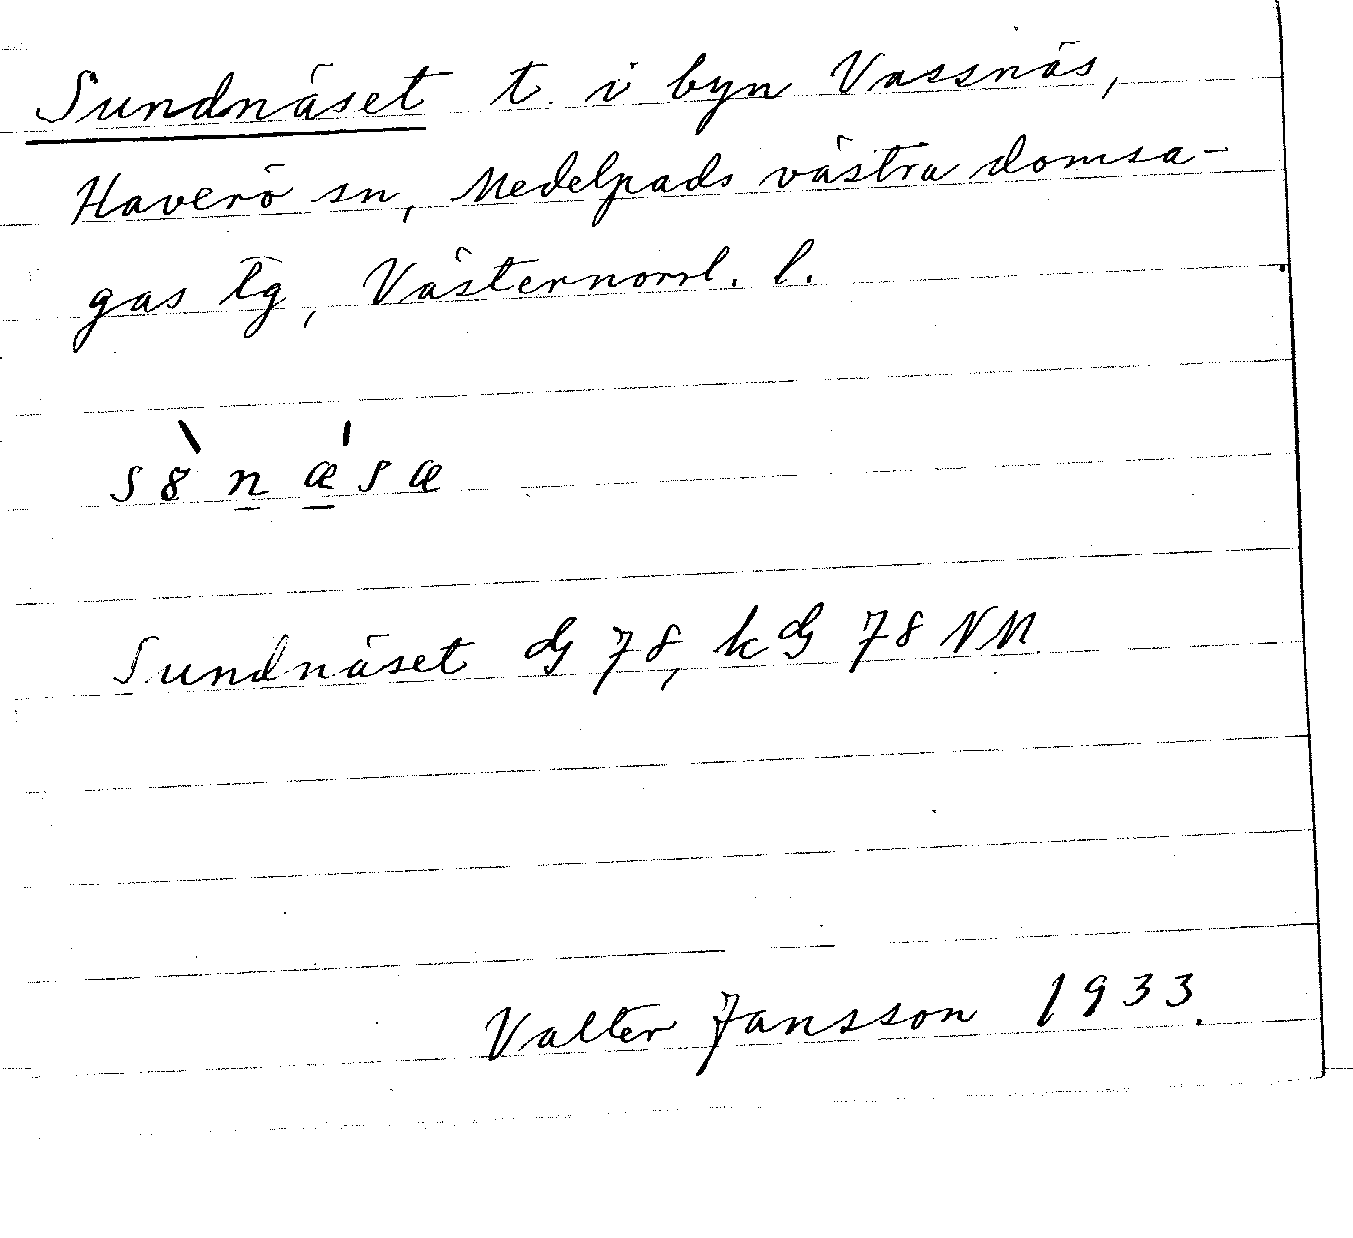 Sundnäset t. i byn Vassnäs,
Haverö sn, Medelpads västra domsa-
gas tg, Västernorrl. l.
s8̀ n ǽ s æ
Sundnäset dG 78, kdG 78 NM
Valter Jansson 1933.